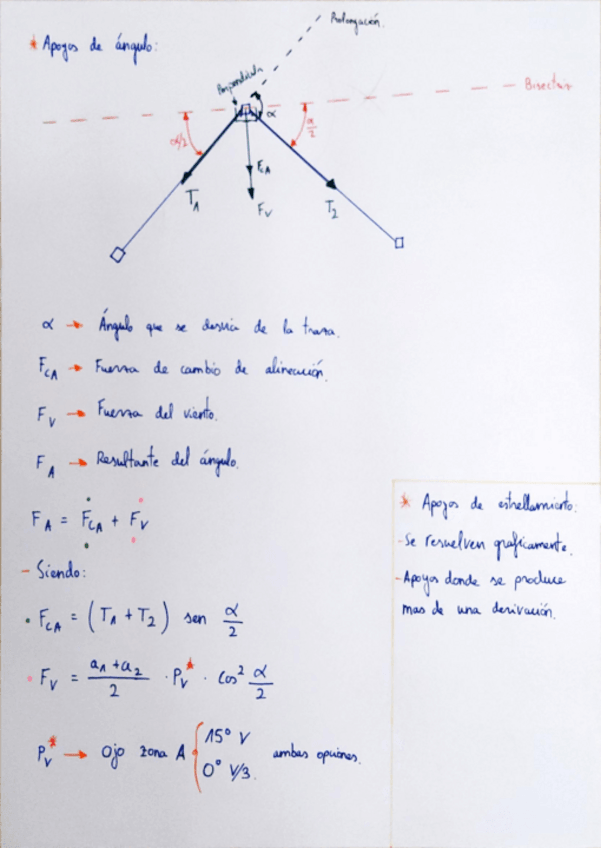 * Apoyos de ángulo:
Prolongación.
Perpendicular
Bisectriz
α
α/2
α/2
F_CA
T_1
F_V
T_2
α → Ángulo que se desvía de la traza.
F_CA → Fuerza de cambio de alineación.
F_V → Fuerza del viento.
F_A → Resultante del ángulo.
F_A = F_CA + F_V
- Siendo:
• F_CA = (T_1 + T_2) sen α/2
• F_V = (a_1 + a_2)/2 · P_V* · cos² α/2
P_V* → Ojo zona A { 15° V
0° V/3. ambas opciones.
* Apoyos de estrellamiento:
- Se resuelven graficamente.
- Apoyos donde se produce
mas de una derivación.